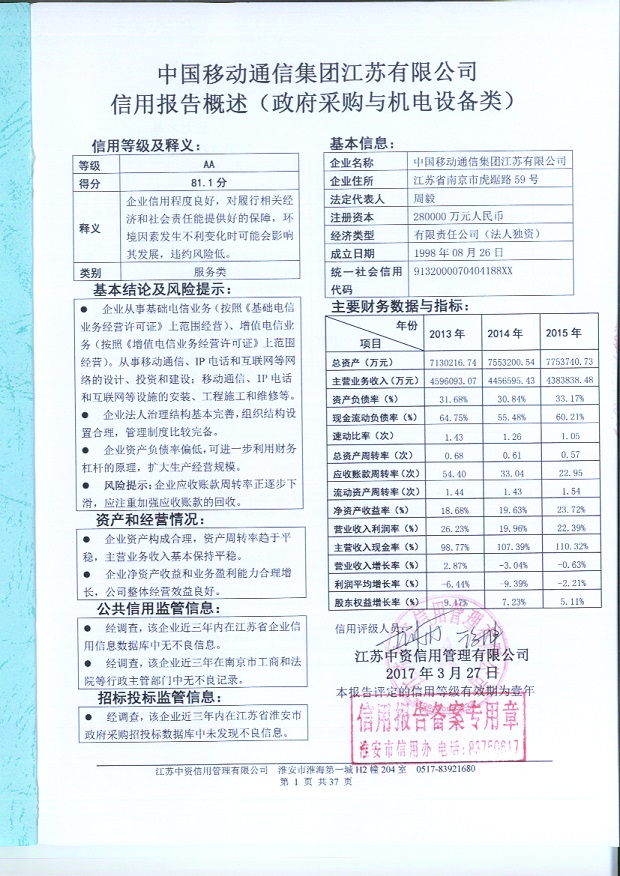 中国移动通信集团江苏有限公司
信用报告概述（政府采购与机电设备类）
信用等级及释义：
等级 AA
得分 81.1 分
释义 企业信用程度良好，对履行相关经
济和社会责任能提供好的保障，环
境因素发生不利变化时可能会影响
其发展，违约风险低。
类别 服务类
基本结论及风险提示：
● 企业从事基础电信业务（按照《基础电信
业务经营许可证》上范围经营）、增值电信业
务（按照《增值电信业务经营许可证》上范围
经营）。从事移动通信、IP 电话和互联网等网
络的设计、投资和建设；移动通信、IP 电话
和互联网等设施的安装、工程施工和维修等。
● 企业法人治理结构基本完善，组织结构设
置合理，管理制度比较完备。
● 企业资产负债率偏低，可进一步利用财务
杠杆的原理，扩大生产经营规模。
● 风险提示：企业应收账款周转率正逐步下
滑，应注重加强应收账款的回收。
资产和经营情况：
● 企业资产构成合理，资产周转率趋于平
稳，主营业务收入基本保持平稳。
● 企业净资产收益和业务盈利能力合理增
长，公司整体经营效益良好。
公共信用监管信息：
● 经调查，该企业近三年内在江苏省企业信
用信息数据库中无不良信息。
● 经调查，该企业近三年在南京市工商和法
院等行政主管部门中无不良记录。
招标投标监管信息：
● 经调查，该企业近三年内在江苏省淮安市
政府采购招投标数据库中未发现不良信息。
基本信息：
企业名称 中国移动通信集团江苏有限公司
企业住所 江苏省南京市虎踞路 59 号
法定代表人 周毅
注册资本 280000 万元人民币
经济类型 有限责任公司（法人独资）
成立日期 1998 年 08 月 26 日
统一社会信用
代码 9132000070404188XX
主要财务数据与指标：
年份
项目 2013 年 2014 年 2015 年
总资产（万元） 7130216.74 7553200.54 7753740.73
主营业务收入（万元） 4596093.07 4456595.43 4383838.48
资产负债率（%） 31.68% 30.84% 33.17%
现金流动负债率（%） 64.75% 55.48% 60.21%
速动比率（次） 1.43 1.26 1.05
总资产周转率（次） 0.68 0.61 0.57
应收账款周转率（次） 54.40 33.04 22.95
流动资产周转率（次） 1.44 1.43 1.54
净资产收益率（%） 18.68% 19.63% 23.72%
营业收入利润率（%） 26.23% 19.96% 22.39%
主营收入现金率（%） 98.77% 107.39% 110.32%
营业收入增长率（%） 2.87% -3.04% -0.63%
利润平均增长率（%） -6.44% -9.39% -2.21%
股东权益增长率（%） 9.17% 7.23% 5.11%
信用评级人员
江苏中资信用管理有限公司
2017 年 3 月 27 日
本报告评定的信用等级有效期为壹年
信用报告备案专用章
淮安市信用办 电话：83750617
江苏中资信用管理有限公司 淮安市淮海第一城 H2 幢 204 室 0517-83921680
第 1 页 共 37 页